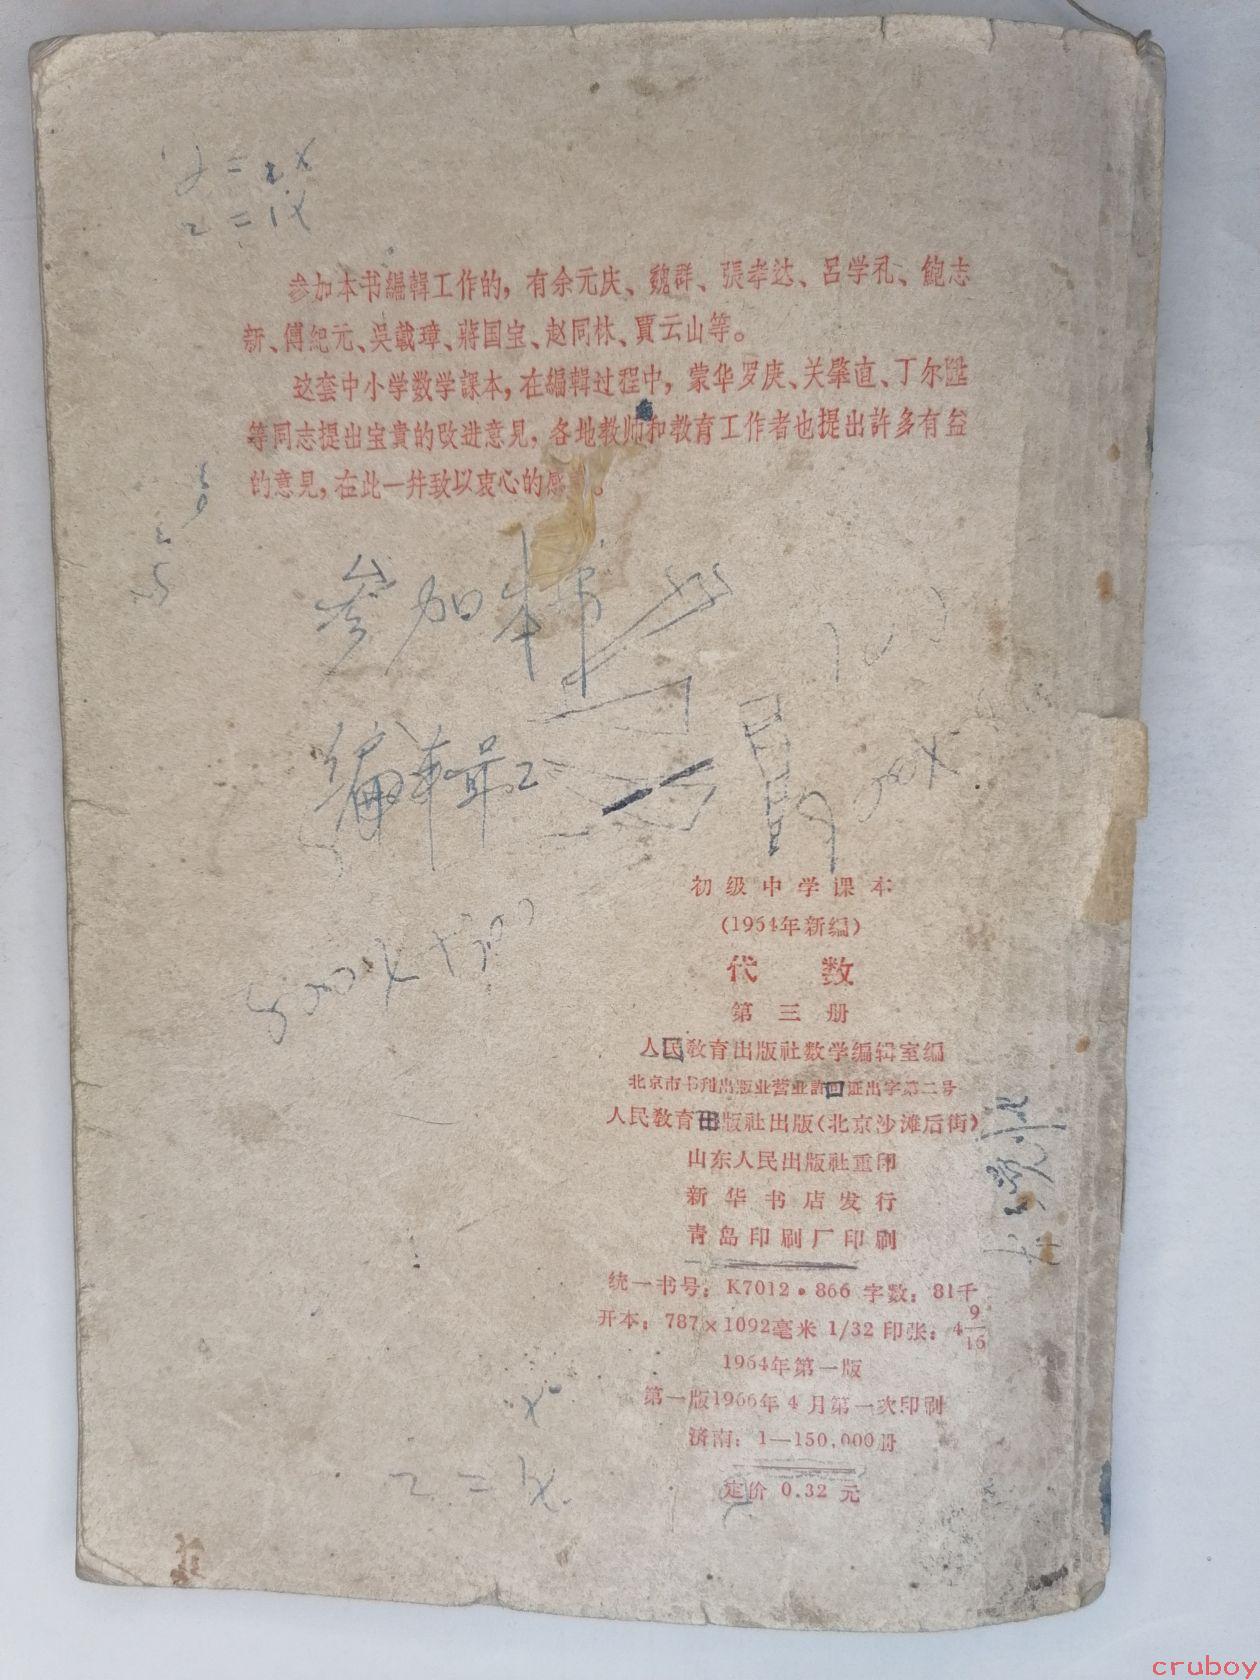 y = 2x
z = 1x
参加本书編輯工作的，有余元庆、魏群、張孝达、呂学礼、鮑志
新、傅紀元、吳載璋、蔣国宝、赵同林、賈云山等。
这套中小学数学課本，在編輯过程中，蒙华罗庚、关肇直、丁尔陞
等同志提出宝貴的改进意見，各地教师和教育工作者也提出許多有益
的意見，在此一并致以衷心的感 。
参加本书
編輯工
初级中学课本
(1964年新编)
代 数
第三册
人民教育出版社数学编辑室编
北京市书刊出版业营业許可证出字第二号
人民教育出版社出版(北京沙滩后街)
山东人民出版社重印
新华书店发行
青岛印刷厂印刷
统一书号：K7012·866 字数：81千
开本：787×1092毫米 1/32 印张：4 9/16
1964年第一版
第一版1966年4月第一次印刷
济南：1—150,000册
定价 0.32 元
cruboy